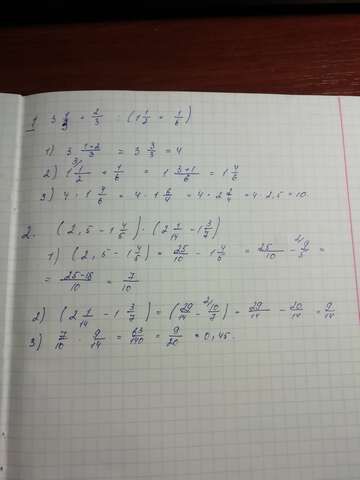 1. 3 1/3 + 2/3 : (1 1/2 + 1/6)
1) 3 1+2/3 = 3 3/3 = 4
2) 1 3/ 1/2 + 1/6 = 1 3+1/6 = 1 4/6
3) 4 · 1 4/6 = 4 · 1 6/4 = 4 · 2 2/4 = 4 · 2,5 = 10
2. (2,5 - 1 4/5) · (2 1/14 - 1 3/7)
1) (2,5 - 1 4/5) = 25/10 - 1 4/5 = 25/10 - 2/ 9/5 =
= 25-18/10 = 7/10
2) (2 1/14 - 1 3/7) = (29/14 - 2/ 10/7) = 29/14 - 20/14 = 9/14
3) 7/10 · 9/14 = 63/140 = 9/20 = 0,45.